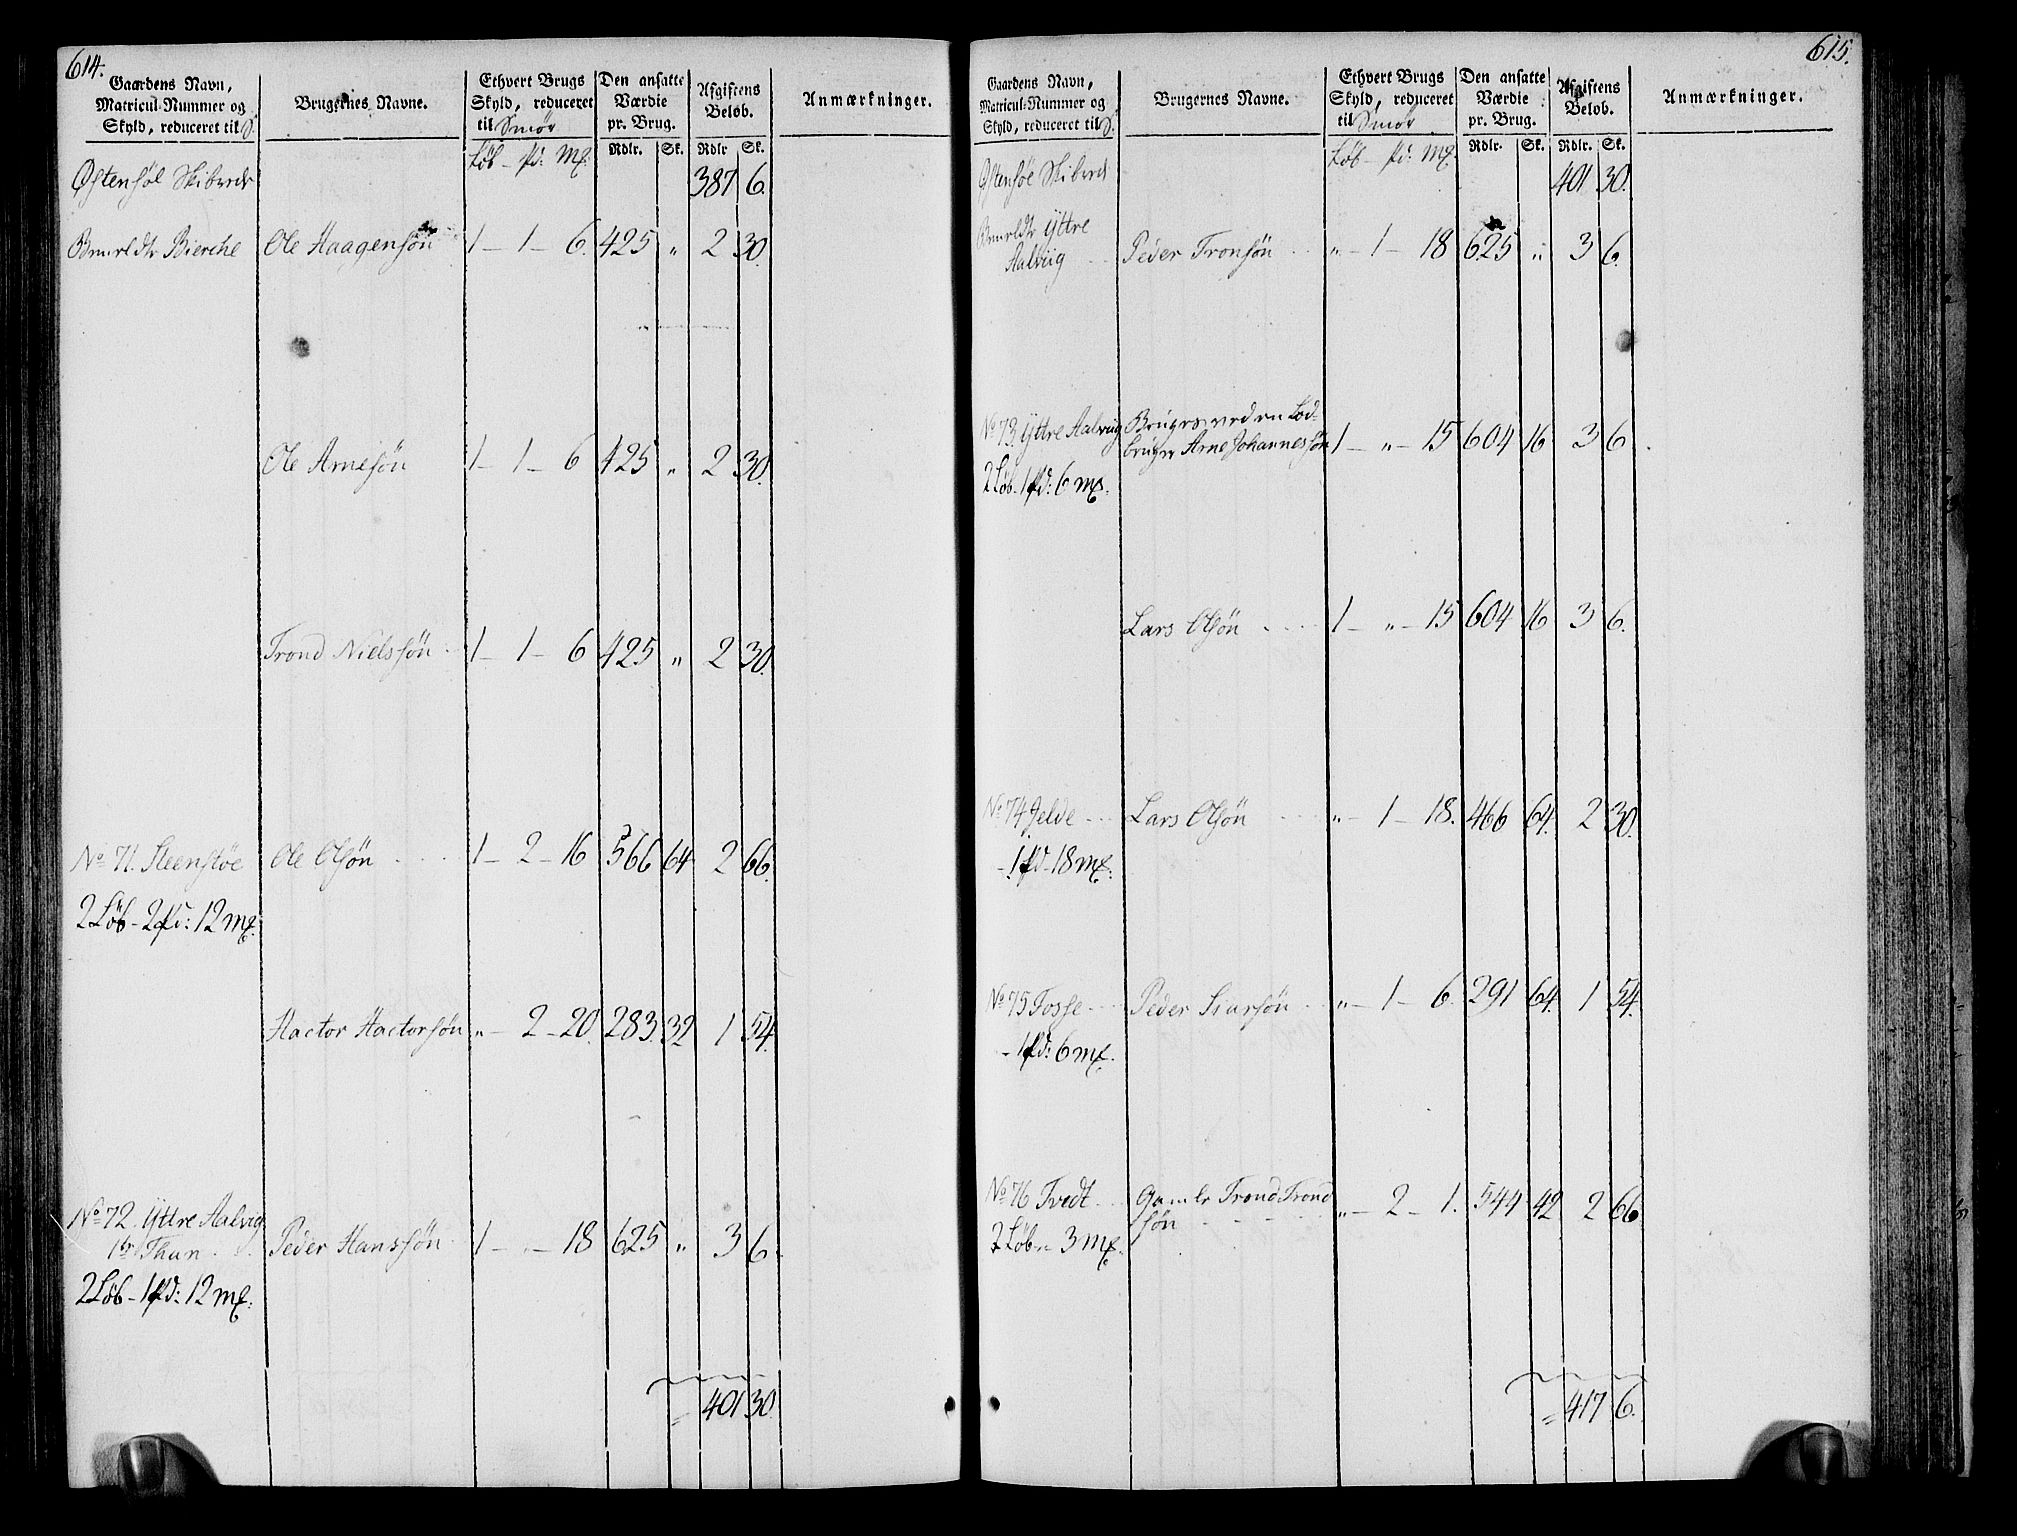 614.
Gaardens Navn, Matricul-Nummer og Skyld, reduceret til S. | Brugernes Navne. | Ethvert Brugs Skyld, reduceret til Smör | Den ansatte Værdie pr. Brug. | Afgiftens Beløb. | Anmærkninger.
Löb – pd: mk: | Rdlr. | Sk. | Rdlr. | Sk.
Östensöe Skiberede 387 6.
Bemeldte Bierche Ole Haagensön 1 – 1 – 6. 425 " 2 30.
Ole Arnesön 1 – 1 – 6 425 " 2 30.
Trond Nielssön 1 – 1 – 6 425 " 2 30.
No 71. Steenstöe Ole Olsön 1 – 2 – 16 566 64 2 66.
2 Löb – 2 pd: 12 mk:
Hactor Hactorsön " – 2 – 20. 283. 32 1 54.
No 72. Yttre Aalvig
Thun Peder Hanssön 1 – " – 18 625 " 3 6.
2 Löb – 1 pd: 12 mk:
= 401 30.
615.
Gaardens Navn, Matricul-Nummer og Skyld, reduceret til S. | Brugernes Navne. | Ethvert Brugs Skyld, reduceret til Smör | Den ansatte Værdie pr. Brug. | Afgiftens Beløb. | Anmærkninger.
Löb – pd: mk: | Rdlr. | Sk. | Rdlr. | Sk.
Östensöe Skiberede 401 30.
Bemeldte Yttre
Aalviig Peder Tronsön " – 1 – 18 625 " 3 6.
No 73 Yttre Aalviig Bruges med en Lod-
bruger Arne Johannessön 1 – " – 15 604 16 3 6.
2 Löb – 1 pd: 6 mk.
Lars Olsön 1 – " – 15 604 16 3 6.
No 74 Jelde Lars Olsön " – 1 – 18. 466 64. 2 30.
– 1 pd – 18 mk:
No 75 Fosse Peder Siursön " – 1 – 6. 291 64. 1 54.
– 1 pd: 6 mk.
No 76 Tvedt Gamle Trond Trond
sön " – 2 – 1. 544 42 2 66
2 Löb " 3 mk.
= 417 6.